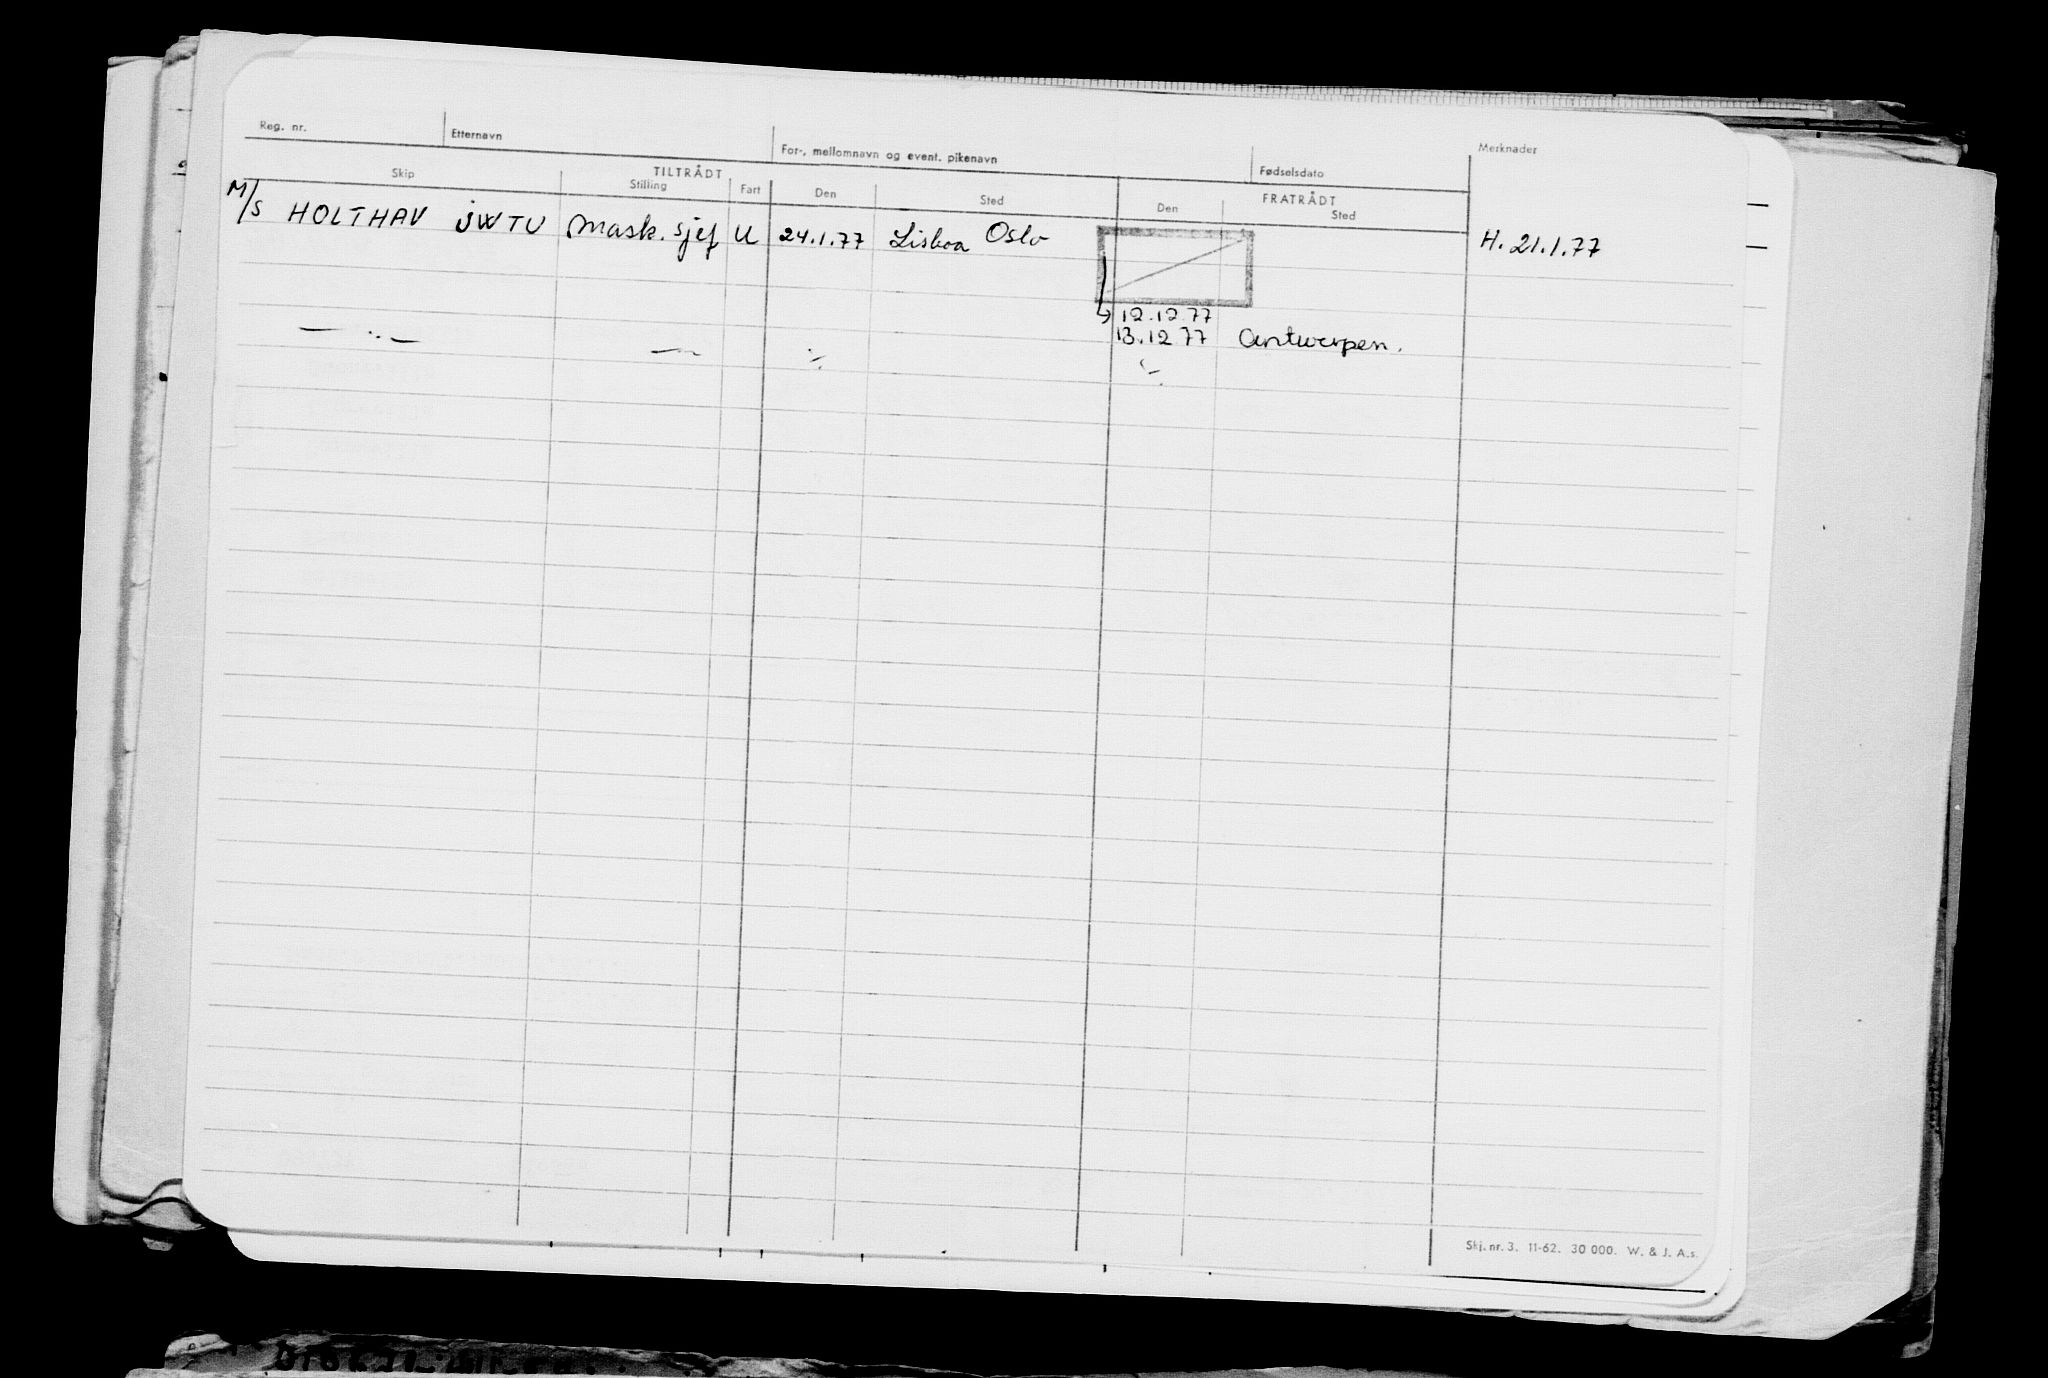 Reg. nr. Etternavn For-, mellomnavn og event. pikenavn Fødselsdato Merknader
TILTRÅDT FRATRÅDT
Skip Stilling Fart Den Sted Den Sted
M/S HOLTHAV JWTU Mask. sjef U 24.1.77 Lisboa Oslo H. 21.1.77
12.12.77
— " — — " — " 13.12 77 Antwerpen.
Skj. nr. 3. 11-62. 30 000. W. & J. A.s.